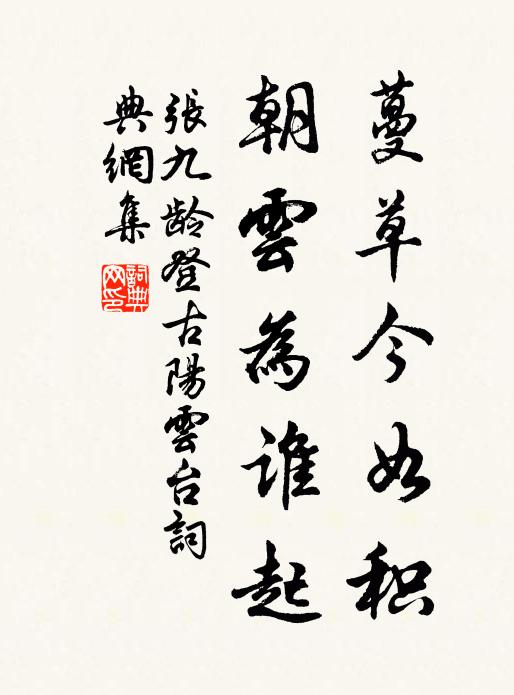 蔓草今如积
朝雲為誰起
張九龄登古陽雲台詞
典網集
詞典网印